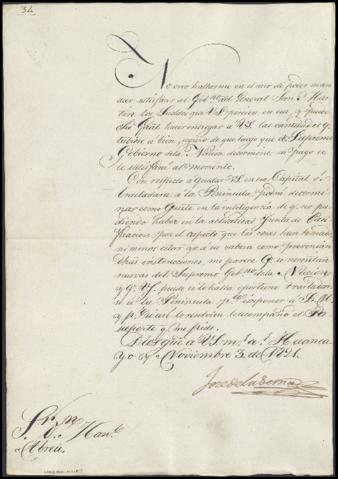 34
No creo hallarme en el caso de poder man
dar satisfacer al Gob.no del General San Mar
tin los sueldos que VS. percive en esa, y puede
dho Gral hacer entregar a VS. las cantidades q.
tubiere a bien, seguro de que luego que el Supremo
Gobierno de la Nacion determine su pago se
le satisfará al momento.
Con respecto a quedar VS. en esa Capital ó
trasladarse a la Peninsula podrá determi
nar como guste en la inteligencia de q. no pu
diendo haber en la actualidad Junta de Paci
ficacion por el aspecto que las cosas han tomado
ni menos estar yo a su cabeza como prevenian
dhas instrucciones, me parece q. se necesitan
nuevas del Supremo Gob.no de la Nacion
y q. VS. puede si lo halla oportuno trasladar
se a la Peninsula p.a exponer a S. M.
y p.a
le acompaño el Pa
saporte q. me pide.
Dios gue a VS. m.s a.s Huanca
yo
Noviembre 3 de 1821.
José de la Serna
S.or
D. Man.l
Abreu